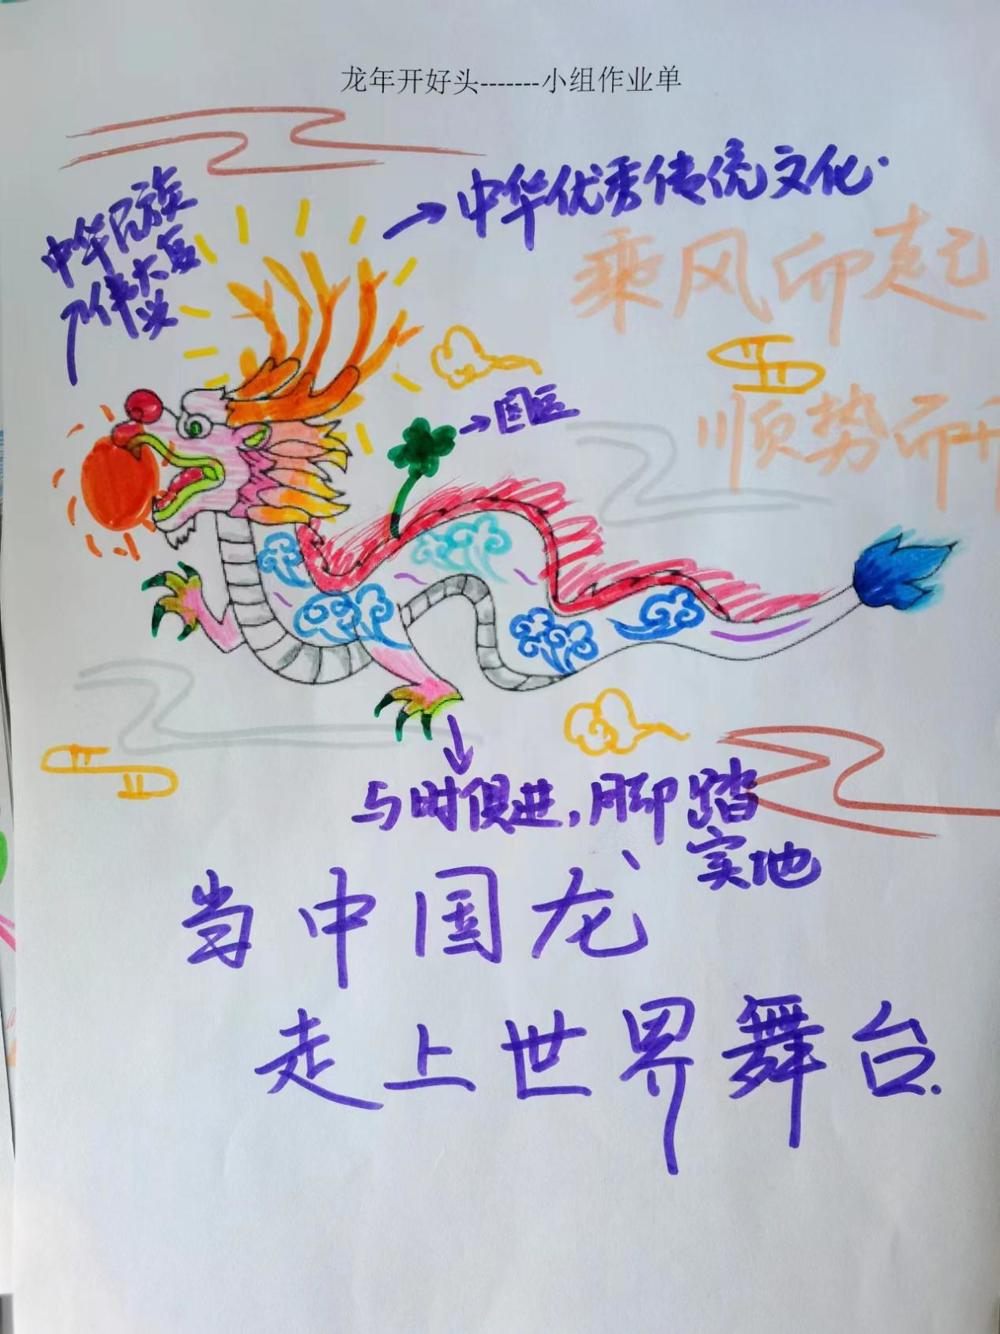 龙年开好头-------小组作业单
中华优秀传统文化.
中华民族
伟大复
兴
乘风而起
国运
顺势而
与时俱进,脚踏
实地
当中国龙
走上世界舞台.